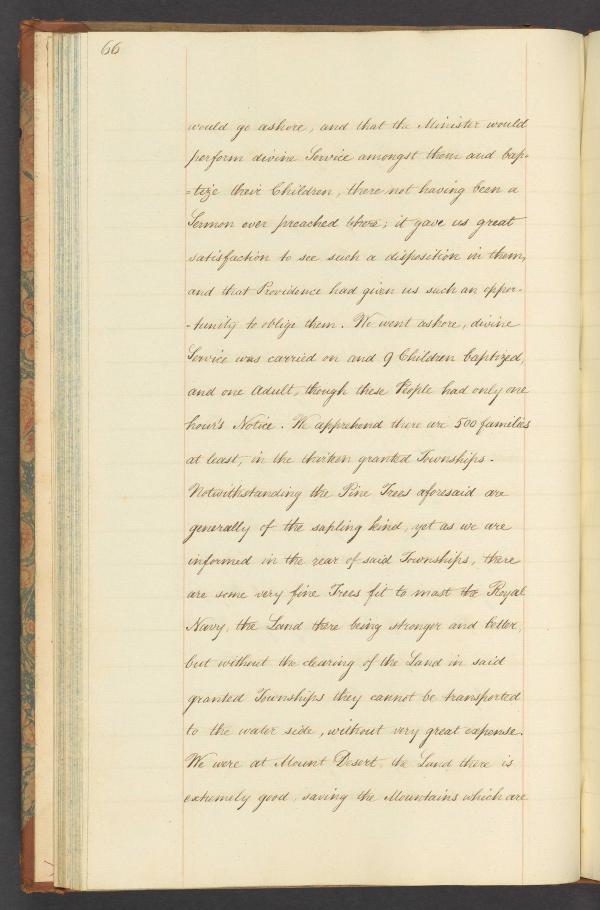 66
would go ashore, and that the Minister would
perform divine Service amongst them and bap-
=tize their Children, there not having been a
Sermon ever preached there; it gave us great
satisfaction to see such a disposition in them,
and that Providence had given us such an oppor-
-tunity to oblige them. We went ashore, divine
Service was carried on and 9 Children baptized,
and one Adult, though these People had only one
hour's Notice. We apprehend there are 500 families
at least, in the thirteen granted Townships.
Notwithstanding the Pine Trees aforesaid are
generally of the sapling kind, yet as we are
informed in the rear of said Townships, there
are some very fine Trees fit to mast the Royal
Navy, the Land there being stronger and better,
but without the clearing of the Land in said
granted Townships they cannot be transported
to the water side, without very great expense.
We were at Mount Desert, the Land there is
extremely good, saving the Mountains which are